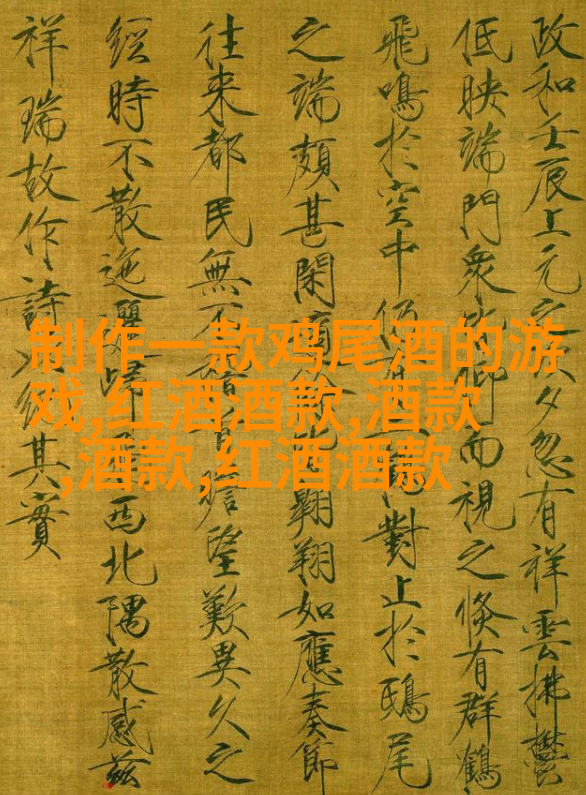 政和壬辰上元之夕忽有祥雲拂鬱
低映端門衆皆仰而視之倐有群鶴
飛鳴於空中仍有對止於鴟尾
之端頗甚閑適皆翱翔如應奏節
往來都民無不瞻望歎異久之
經時不散迤邐歸西北隅散感茲
祥瑞故作詩以紀其實
制作一款鸡尾酒的游
戏,红酒酒款,酒款
,酒款,红酒酒款